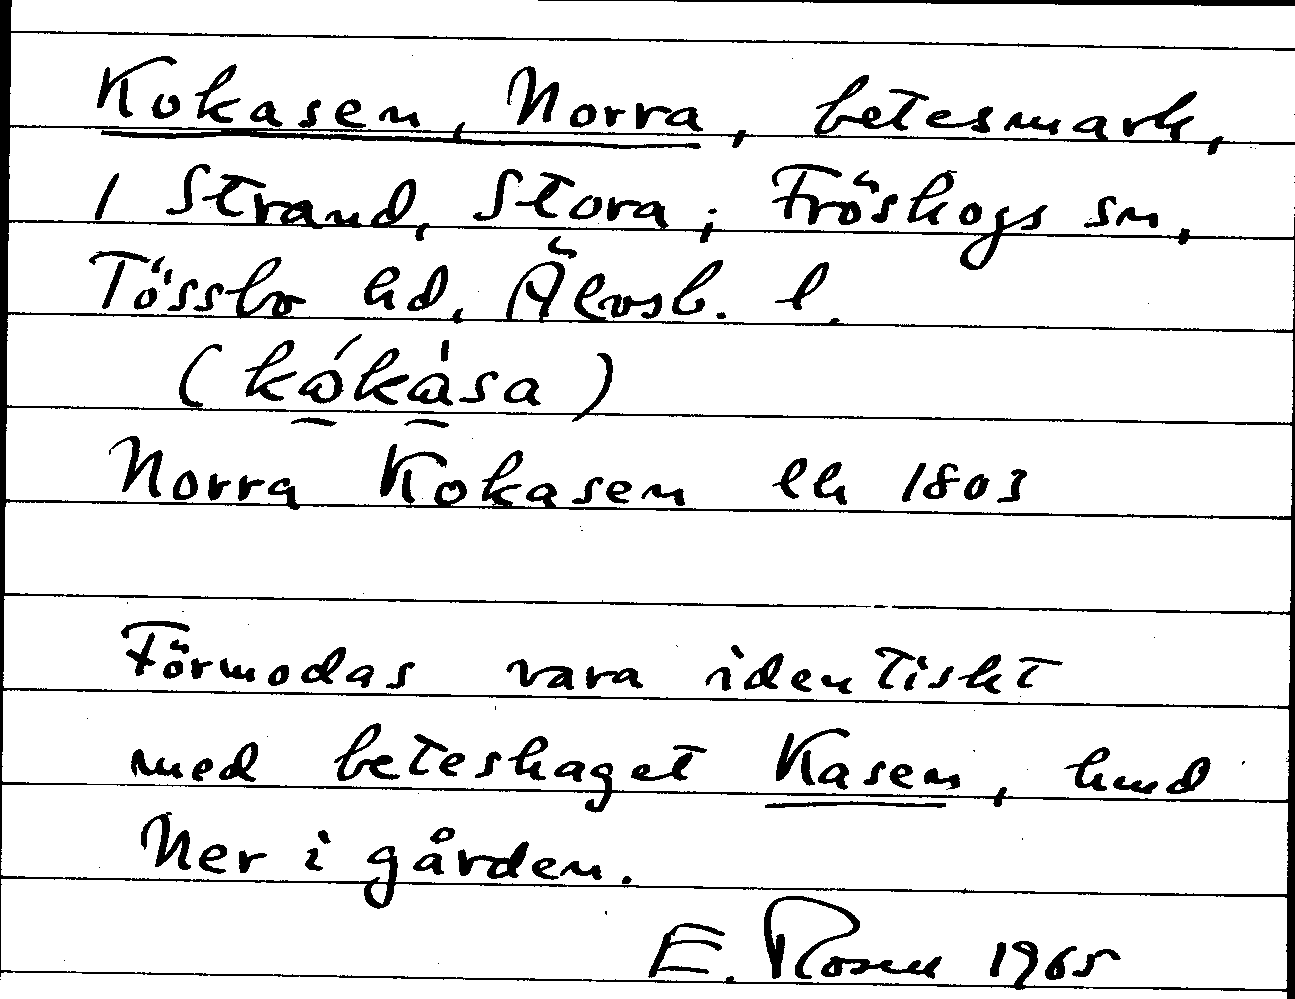 Kokasen, Norra, betesmark,
1 Strand, Stora; Fröskogs sn,
Tössbo hd, Älvsb. l.
(kǿkàsa)
Norra Kokasen lh 1803
Förmodas vara identiskt
med beteshaget Kasen, hmd
Ner i gården.
E. Rosen 1965